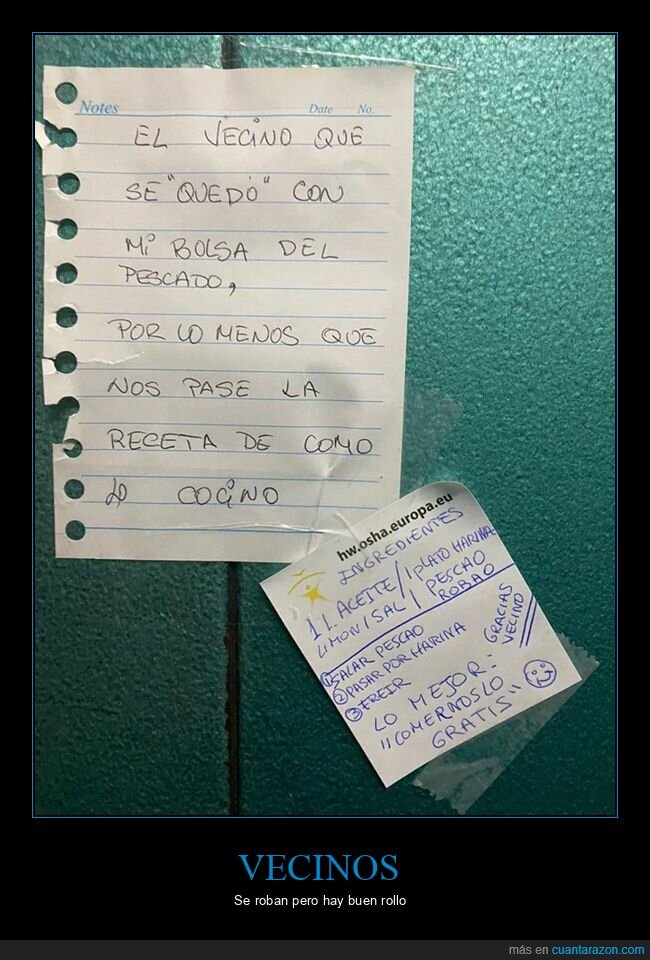 Notes Date No.
EL VECINO QUE
SE "QUEDÓ" CON
MI BOLSA DEL
PESCADO,
POR LO MENOS QUE
NOS PASE LA
RECETA DE COMO
LO COCINO
hw.osha.europa.eu
INGREDIENTES
1 L ACEITE / 1 PLATO HARINA
LIMON / SAL / 1 PESCAO
ROBAO
① SALAR PESCAO
② PASAR POR HARINA
③ FREIR
GRACIAS
VECINO
LO MEJOR:
"COMERNOSLO
GRATIS"
VECINOS
Se roban pero hay buen rollo
más en cuantarazon.com